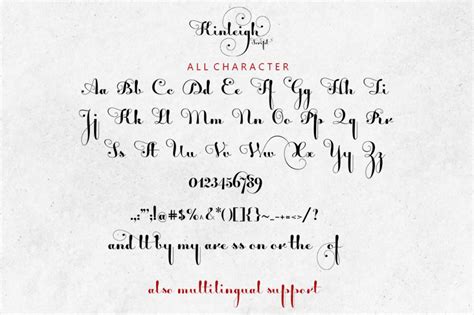 Kinleigh
Script
ALL CHARACTER
Aa Bb Cc Dd Ee Ff Gg Hh Ii
Jj Kk Ll Mm Nn Oo Pp Qq Rr
Ss Tt Uu Vv Ww Xx Yy Zz
0123456789
.,:;"';!@#$%^&*()[]{}~-_+=<>/?
and ll by my are ss on or the of
also multilingual support